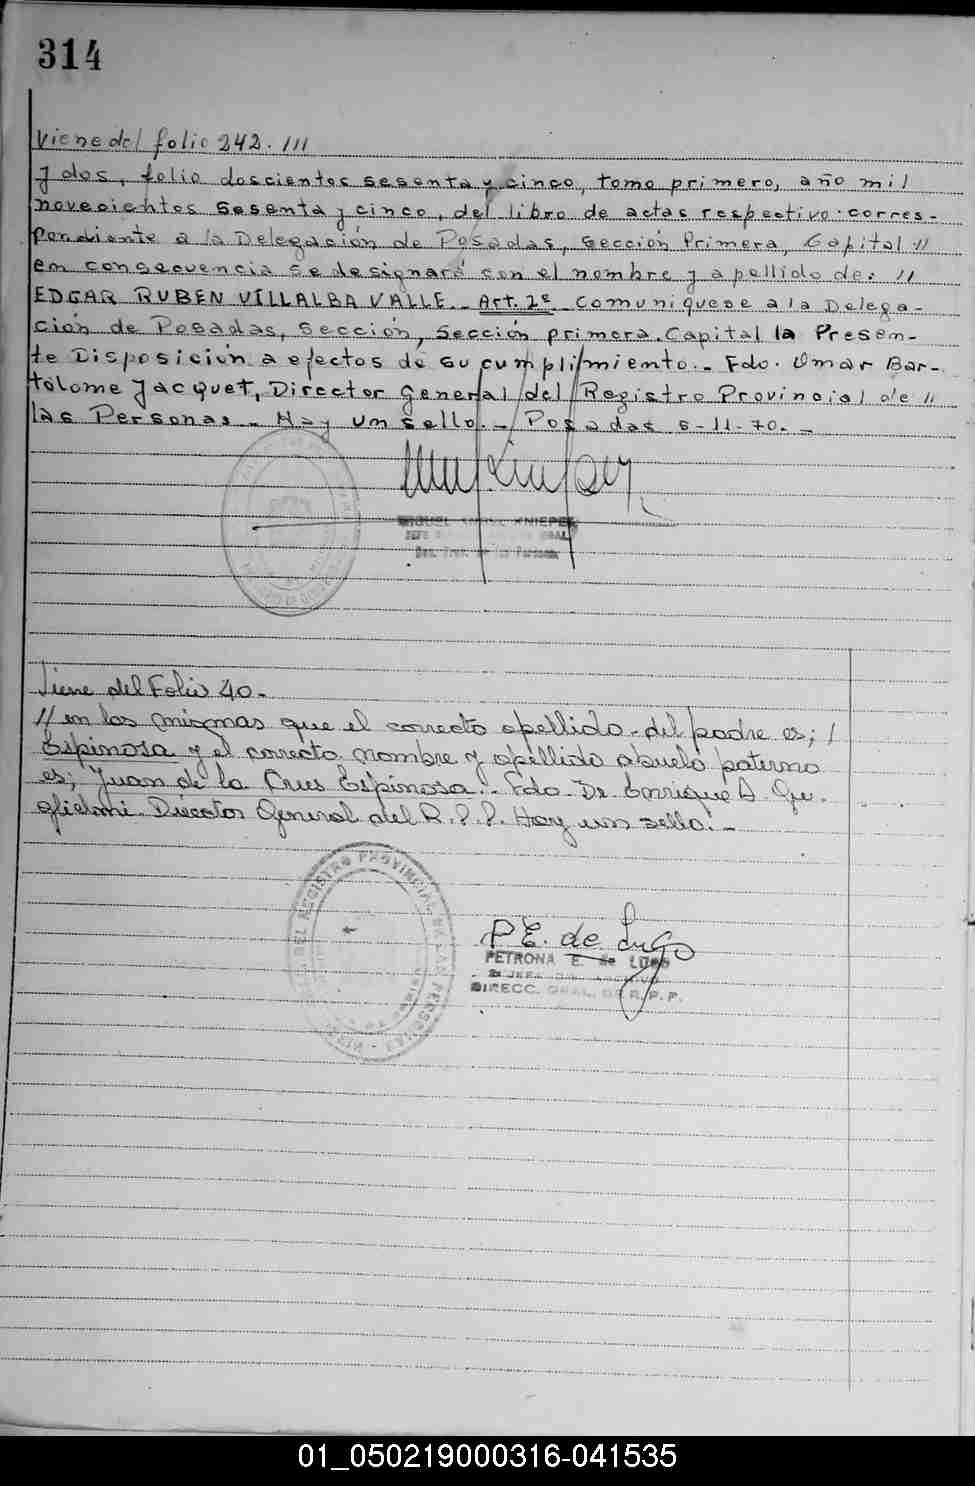 314
Viene del folio 242. ///
y dos, folio doscientos sesenta y cinco, tomo primero, año mil
novecientos sesenta y cinco, del libro de actas respectivo. corres-
pondiente a la Delegación de Posadas, Sección Primera, Capital //
em consecuencia se designará con el nombre y apellido de: //
EDGAR RUBEN VILLALBA VALLE. Art. 2º Comuniquese a la Delega-
ción de Posadas, Sección, Sección primera. Capital la Presen-
te Disposición a efectos de su cumplimiento.. Fdo. Omar Bar-
tolome Jacquet, Director General del Registro Provincial de //
las Personas - Hay un sello. - Posadas 6-11-70. -
MIGUEL KNIEPER
Viene del Folio 40.-
// en los mismas que el correcto apellido del padre es; /
Espinosa y el correcto nombre y apellido abuelo paterno
es; Juan de la Crus Espinosa.- Fdo. Dr. Enrique A. Gu-
glielmi. Director General del R.P.P. Hay un sello.-
DEL REGISTRO PROVINCIAL DE LAS PERSONAS
P E. de Lugo
PETRONA E. de LUGO
DIRECC. GRAL. DE R.P.P.
01_050219000316-041535